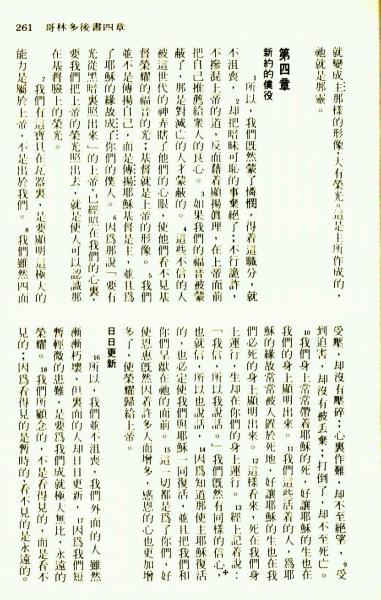 261　哥林多後書四章
就變成主那樣的形像,大有榮光。這是主所作成的,
祂就是那靈。
第四章
新約的僕役
1所以,我們既然蒙了憐憫,得着這職分,就
不沮喪,2却把暗昧可恥的事棄絕了;不行詭詐,
不摻混上帝的道,反而藉着顯揚眞理,在上帝面前
把自己推薦給衆人的良心。3如果我們的福音被蒙
蔽了,那是對滅亡的人才蒙蔽的。4這些不信的人
被這世代的神弄瞎了他們的心眼,使他們看不見基
督榮耀的福音的光;基督就是上帝的形像。5我們
並不是傳揚自己,而是傳揚耶穌基督是主,並且爲
了耶穌的緣故成了你們的僕人。6因爲那說「要有
光從黑暗裏照出來」的上帝,已經照在我們的心裏,
要我們把上帝的榮光照出去,就是使人可以認識那
在基督臉上的榮光。
7我們有這寶貝在瓦器裏,是要顯明這極大的
能力是屬於上帝,不是出於我們。8我們雖然四面
受壓,却沒有被壓碎;心裏作難,却不至絕望,9受
到迫害,却沒有被丟棄;打倒了,却不至死亡。
10我們身上常常帶着耶穌的死,好讓耶穌的生也在
我們的身上顯明出來。11我們這些活着的人,爲耶
穌的緣故常常被人置於死地,好讓耶穌的生也在我
們必死的身上顯明出來。12這樣看來,死在我們身
上運行,生却在你們的身上運行。13經上記着說:
「我信,所以我說話。」我們旣然有同樣的信心,
也就信,所以也說話,14因爲知道那使主耶穌復活
的,也必定使我們與耶穌一同復活,並且把我們和
你們呈獻在祂的面前。15這一切都是爲了你們,好
使恩惠旣然因着許多人而增多,感恩的心也更加增
多了,使榮耀歸給上帝。
日日更新
16所以,我們並不沮喪,我們外面的人雖然
漸漸朽壞,但裏面的人却日日更新,17因爲我們短
暫輕微的患難,是要爲我們成就極大無比、永遠的
榮耀。18我們所顧念的,不是看得見的,而是看不
見的;因爲看得見的是暫時的,看不見的是永遠的。